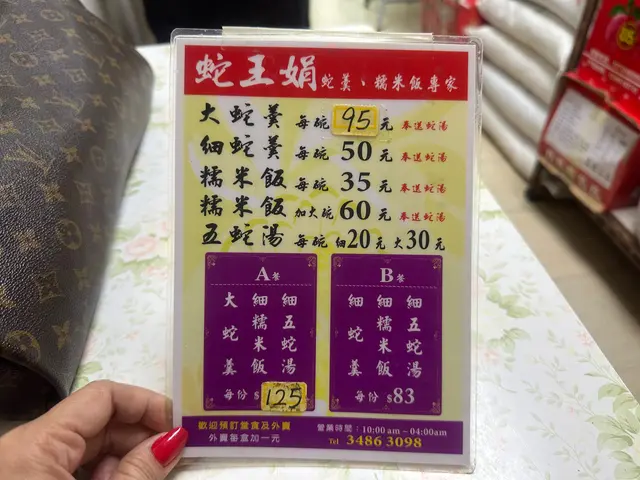 蛇王娟 蛇羹、糯米飯專家
大蛇羹 每碗 95 元 奉送蛇湯
細蛇羹 每碗 50 元 奉送蛇湯
糯米飯 每碗 35 元 奉送蛇湯
糯米飯 加大碗 60 元 奉送蛇湯
五蛇湯 每碗 細20元 大30元
A餐
大蛇羹
細糯米飯
細五蛇湯
每份 $125
B餐
細蛇羹
細糯米飯
細五蛇湯
每份 $83
歡迎預訂堂食及外賣
外賣每盒加一元
營業時間：10:00 am ~ 04:00am
Tel 3486 3098